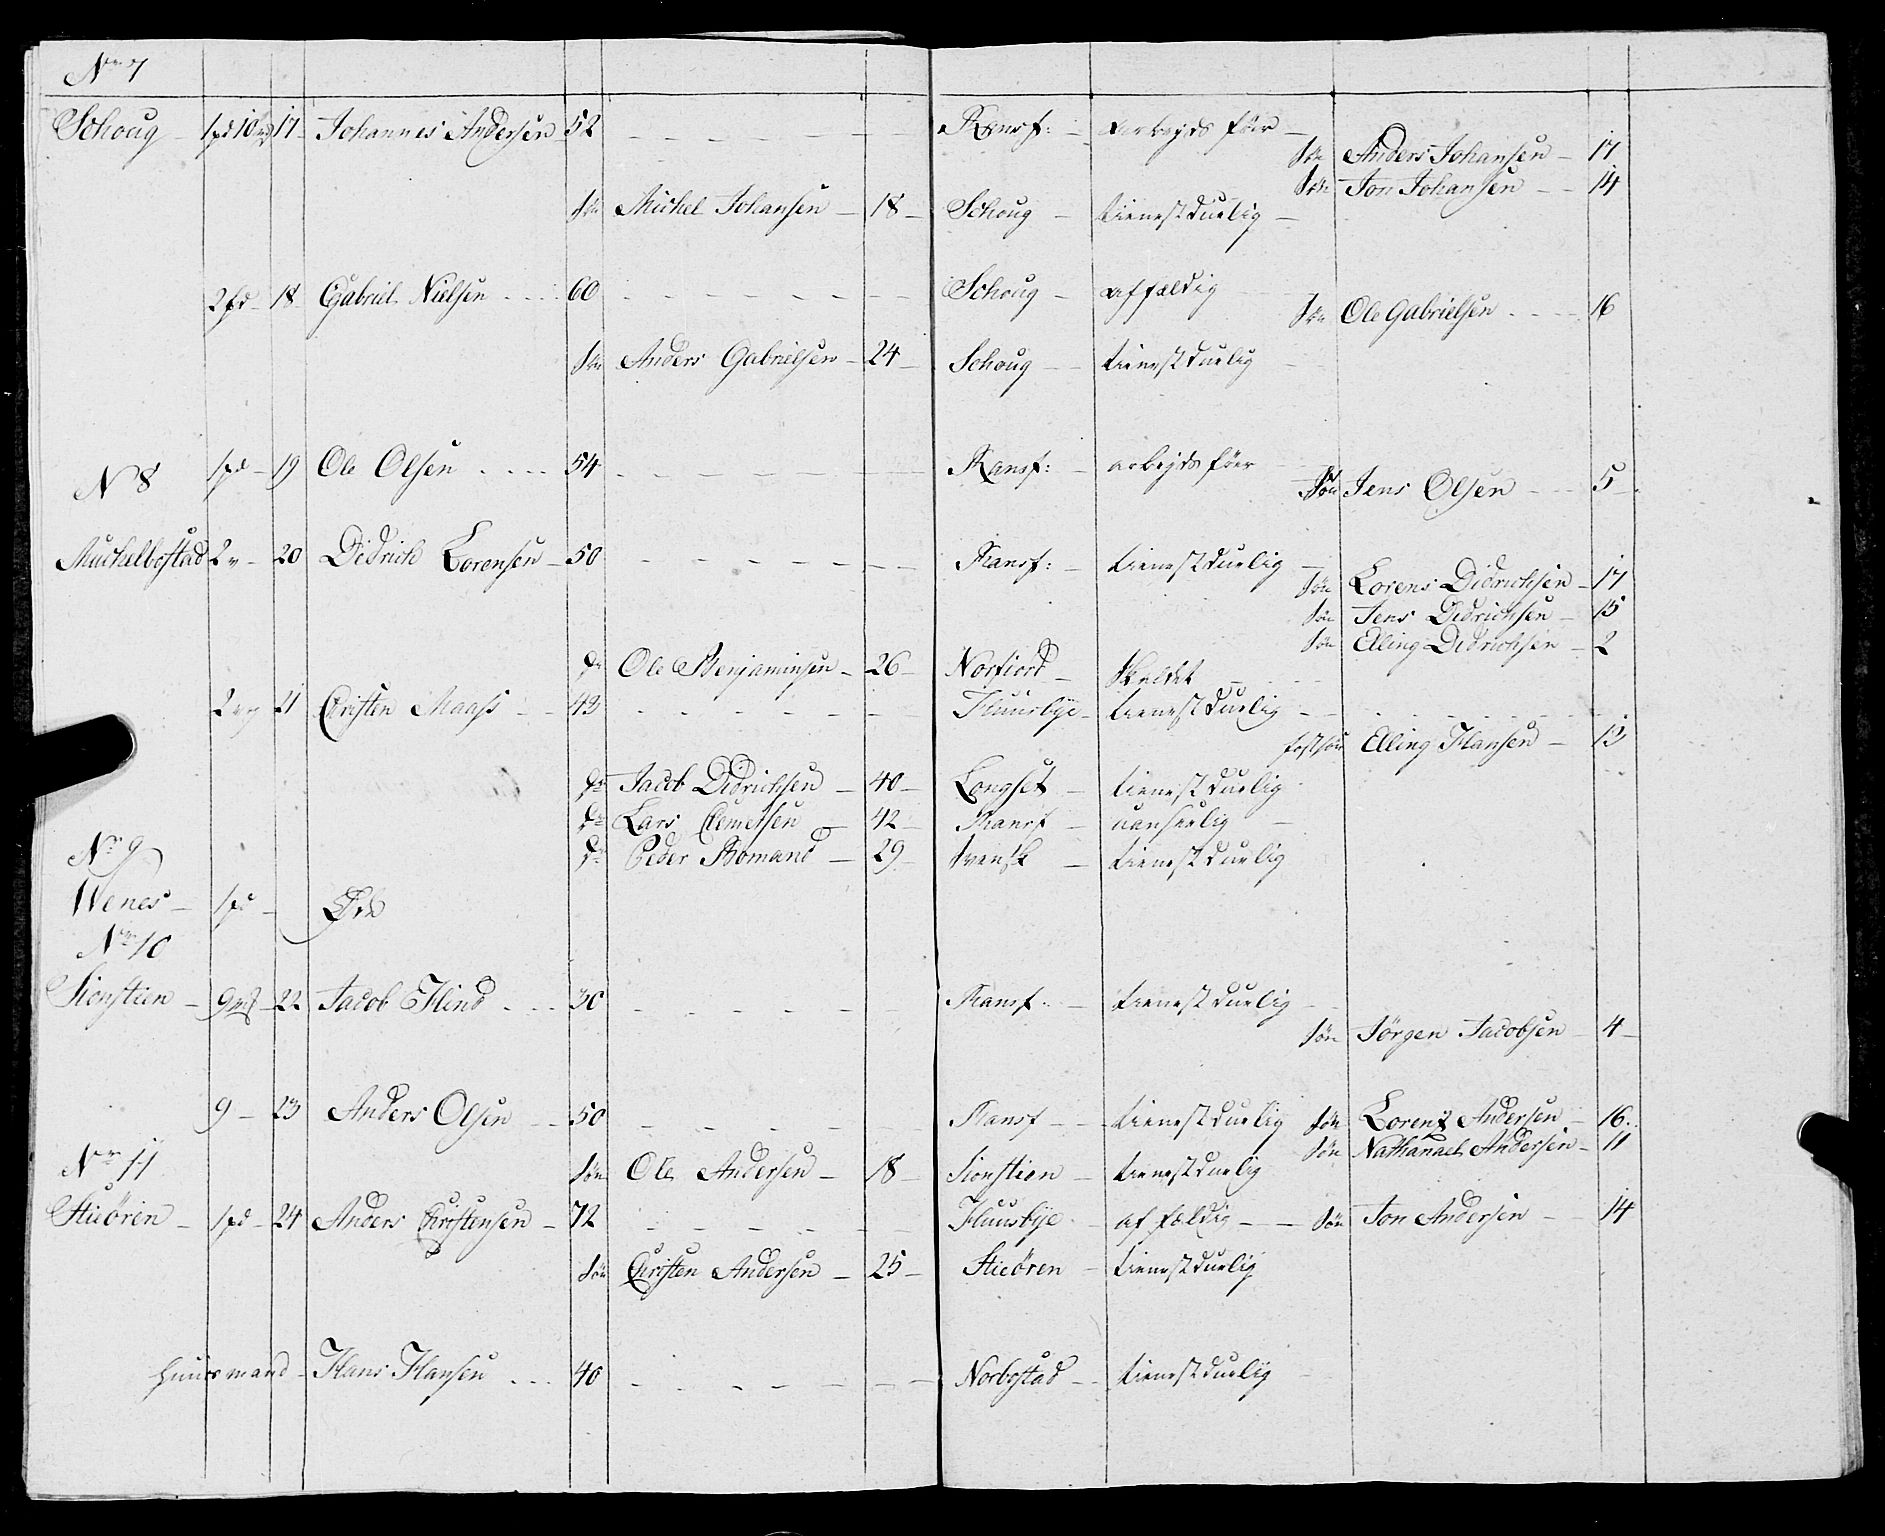 No 7
Schoug 1pd 10 17 Johannes Andersen 52 Ranɘf: arbejds föer
Sön Anders Johansen 17
Sön Jon Johansen 14
Sön Michel Johansen 18 Schoug tienestduelig
2pd 18 Gabriel Nielsen 60 Schoug affældig
Sön Ole Gabrielsen 16
Sön Anders Gabrielsen 24 Schoug tienestduelig
N 8 1pd 19 Ole Olsen 54 Ransf: arbejds föer
Sön Jens Olsen 5
Muchelbostad 2 20 Didrich Lorensen 50 Ransf: tienestduelig
Sön Lorens Didrichsen 17
Sön Jens Didrichsen 15
Sön Elling Didrichsen 2
Dr Ole Benjaminsen 26 Norfiord Skaldet
2 21 Christen Maass 43 Huusbye tienestduelig
fostsön Elling Hansen 13
Dr Jacob Didrichsen 40 Longset tienestduelig
Dr Lars Clemetsen 42 Ransf uanseelig
Dr Peder Bomand 29 Svensk tienestduelig
No 9
Wenes 1pd Øde
No 10
Sionstien 9 22 Jacob Hind 30 Ransf. tienestduelig
Sön Jörgen Jacobsen 4
9 23 Anders Olsen 50 Ransf tienestduelig Sön Lorentz Andersen 16
Sön Nathanael Andersen 11
No 11
Sön Ole Andersen 18 Sionstien tienestduelig
Stieören 1pd 24 Anders Christensen 72 Huusbye affældig Sön Jon Andersen 14
Sön Christen Andersen 25 Stieören tienestduelig
Huusmand Hans Hansen 40 Norbostad tienestduelig